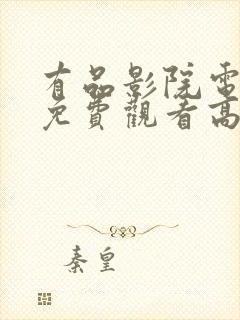 有品影院電
免費觀看高
秦皇